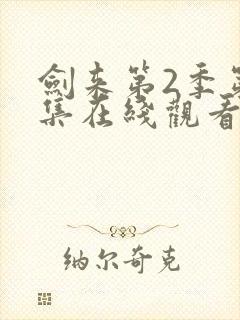 劍来第2季第
集在綫觀看
纳尔奇克